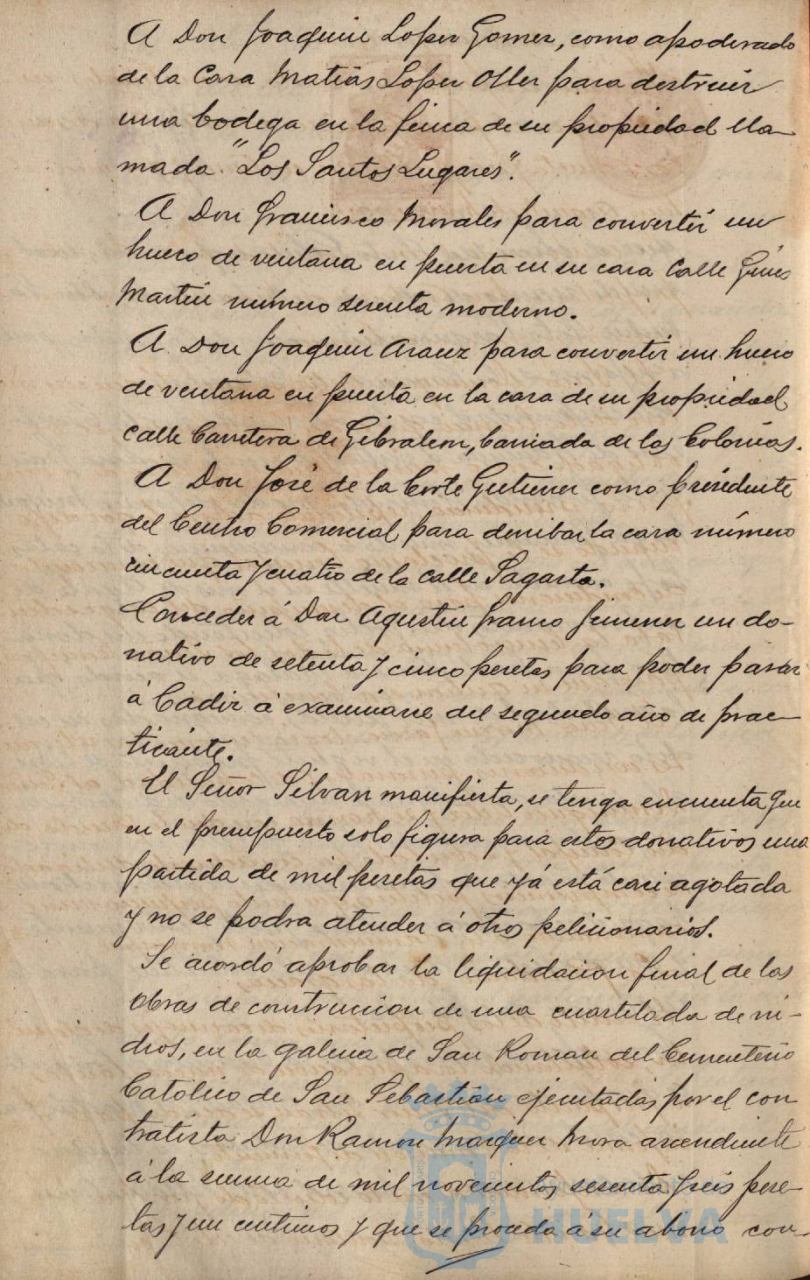 A Don Joaquin Lopez Gomez, como apoderado
de la Casa Matias Lopez Oller para destruir
una bodega en la finca de su propiedad lla-
mada "Los Santos Lugares".
A Don Francisco Morales para convertir un
hueco de ventana en puerta en su casa Calle Ginés
Martin número sesenta moderno.
A Don Joaquin Arauz para convertir un hueco
de ventana en puerta en la casa de su propiedad
calle Carretera de Gibraleon, barriada de las Colonias.
A Don José de la Corte Gutierrez como presidente
del Centro Comercial para derribar la casa número
cincuenta y cuatro de la calle Sagasta.
Conceder á Don Agustin Franco Jimenez un do-
nativo de setenta y cinco pesetas para poder pasar
á Cadiz á examinarse del segundo año de prac-
ticante.
El Señor Silvan manifiesta, se tenga en cuenta que
en el presupuesto solo figura para estos donativos una
partida de mil pesetas que yá está casi agotada
y no se podra atender á otros peticionarios.
Se acordó aprobar la liquidacion final de las
obras de construccion de una cuartelada de ni-
chos, en la galeria de San Roman del Cementerio
Católico de San Sebastián ejecutadas por el con
tratista Don Ramon Marquez Mora ascendiente
á la suma de mil novecientos sesenta y seis pese-
tas y un centimos y que se proceda á su abono con-
HUELVA